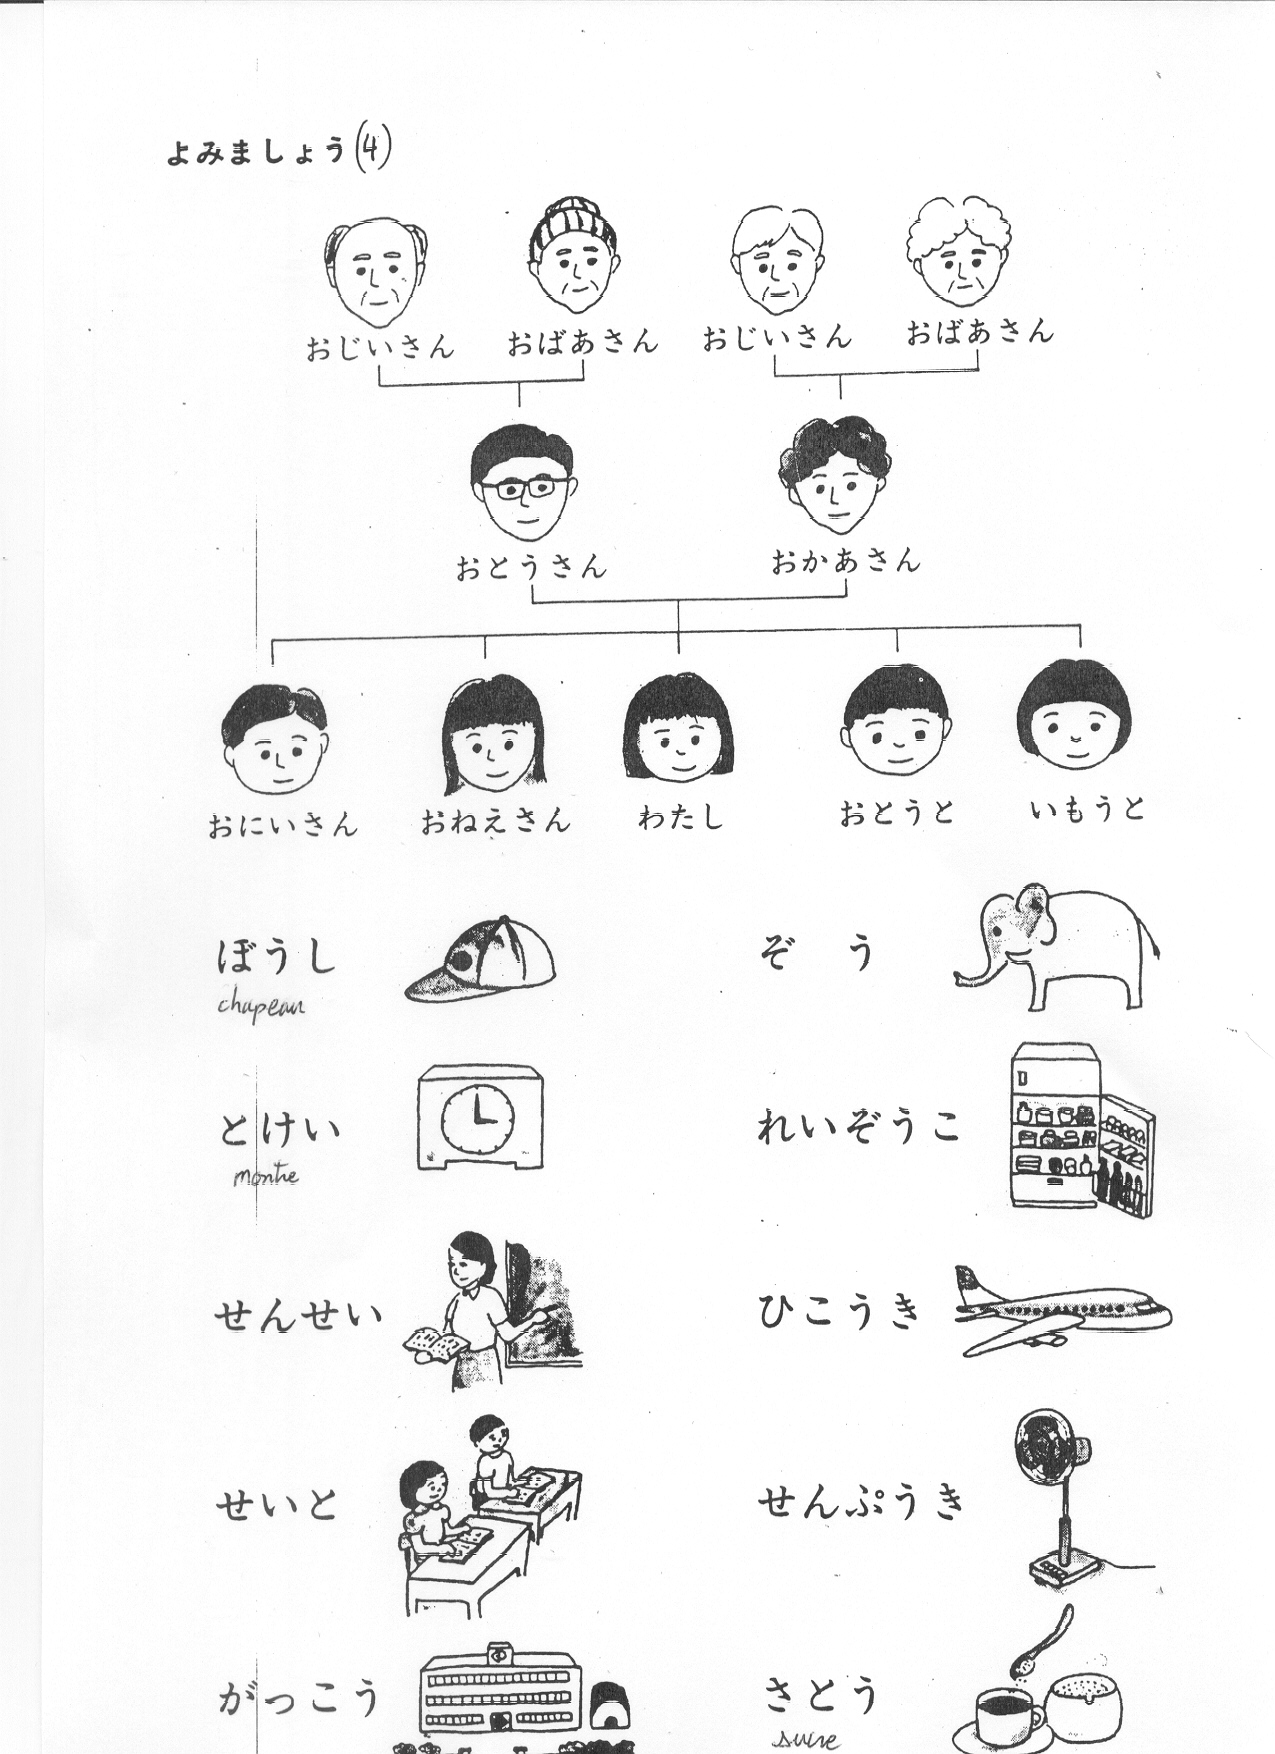 よみましょう(4)
おじいさん おばあさん おじいさん おばあさん
おとうさん おかあさん
おにいさん おねえさん わたし おとうと いもうと
ぼうし ぞう
chapeau
とけい れいぞうこ
montre
せんせい ひこうき
せいと せんぷうき
がっこう さとう
sucre